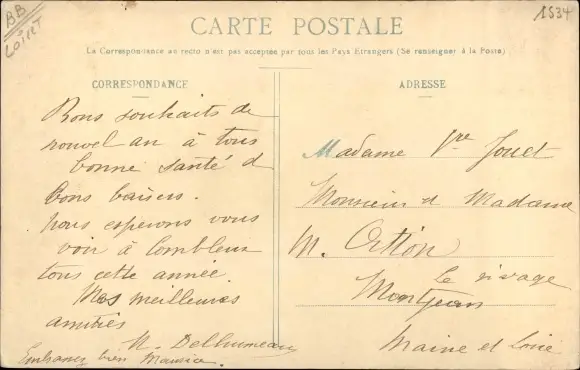 BB
LOIRET
1534
CARTE POSTALE
La Correspondance au recto n'est pas acceptée par tous les Pays Etrangers (Se renseigner à la Poste)
CORRESPONDANCE
Bons souhaits de
nouvel an à tous
bonne santé &
bons baisers.
nous esperons vous
voir à Combleux
tous cette année.
Mes meilleures
amitiés
M. Delhumeau
Embrassez bien Maurice.
ADRESSE
Madame Vve Jouet
Monsieur & Madame
M. Ortion
Le rivage
Montjean
Maine et Loire